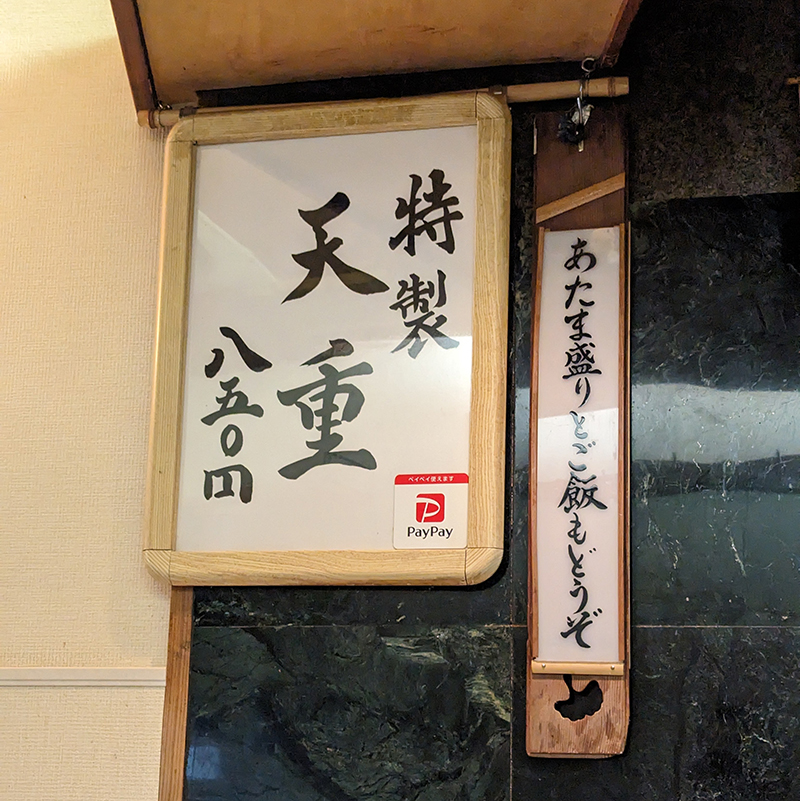 あたま盛りとご飯もどうぞ
特製
天重
八五〇円
ペイペイ使えます
PayPay